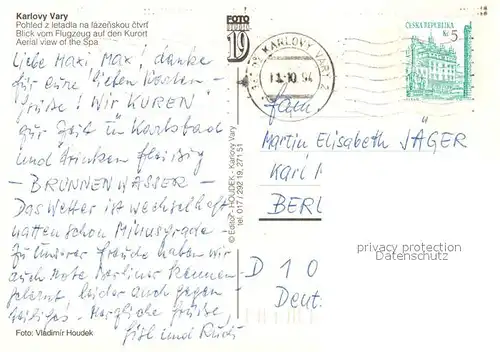 Karlovy Vary
Pohled z letadla na lázeňskou čtvrť
Blick vom Flugzeug auf den Kurort
Aerial view of the Spa
Liebe Maxi Max! danke
für eure lieben Karten-
grüße! Wir KUREN
zur Zeit in Karlsbad
und trinken fleißig
- BRUNNENWASSER -
Das Wetter ist wechselhaft
hatten schon Minusgrade -
zu unserer Freude haben wir
auch nette Berliner kennen-
gelernt, leider auch gegen-
Herzliche Grüße,
und Rudi
Foto: Vladimír Houdek
FOTO
19
© Foto - HOUDEK - Karlovy Vary
tel. 017/292 19, 271 51
KARLOVY VARY 2
11.10.94
ČESKÁ REPUBLIKA
Kč 5
Fam.
Martin Elisabeth JÄGER
Karl M
BERL
D 10
Deut
privacy protection
Datenschutz